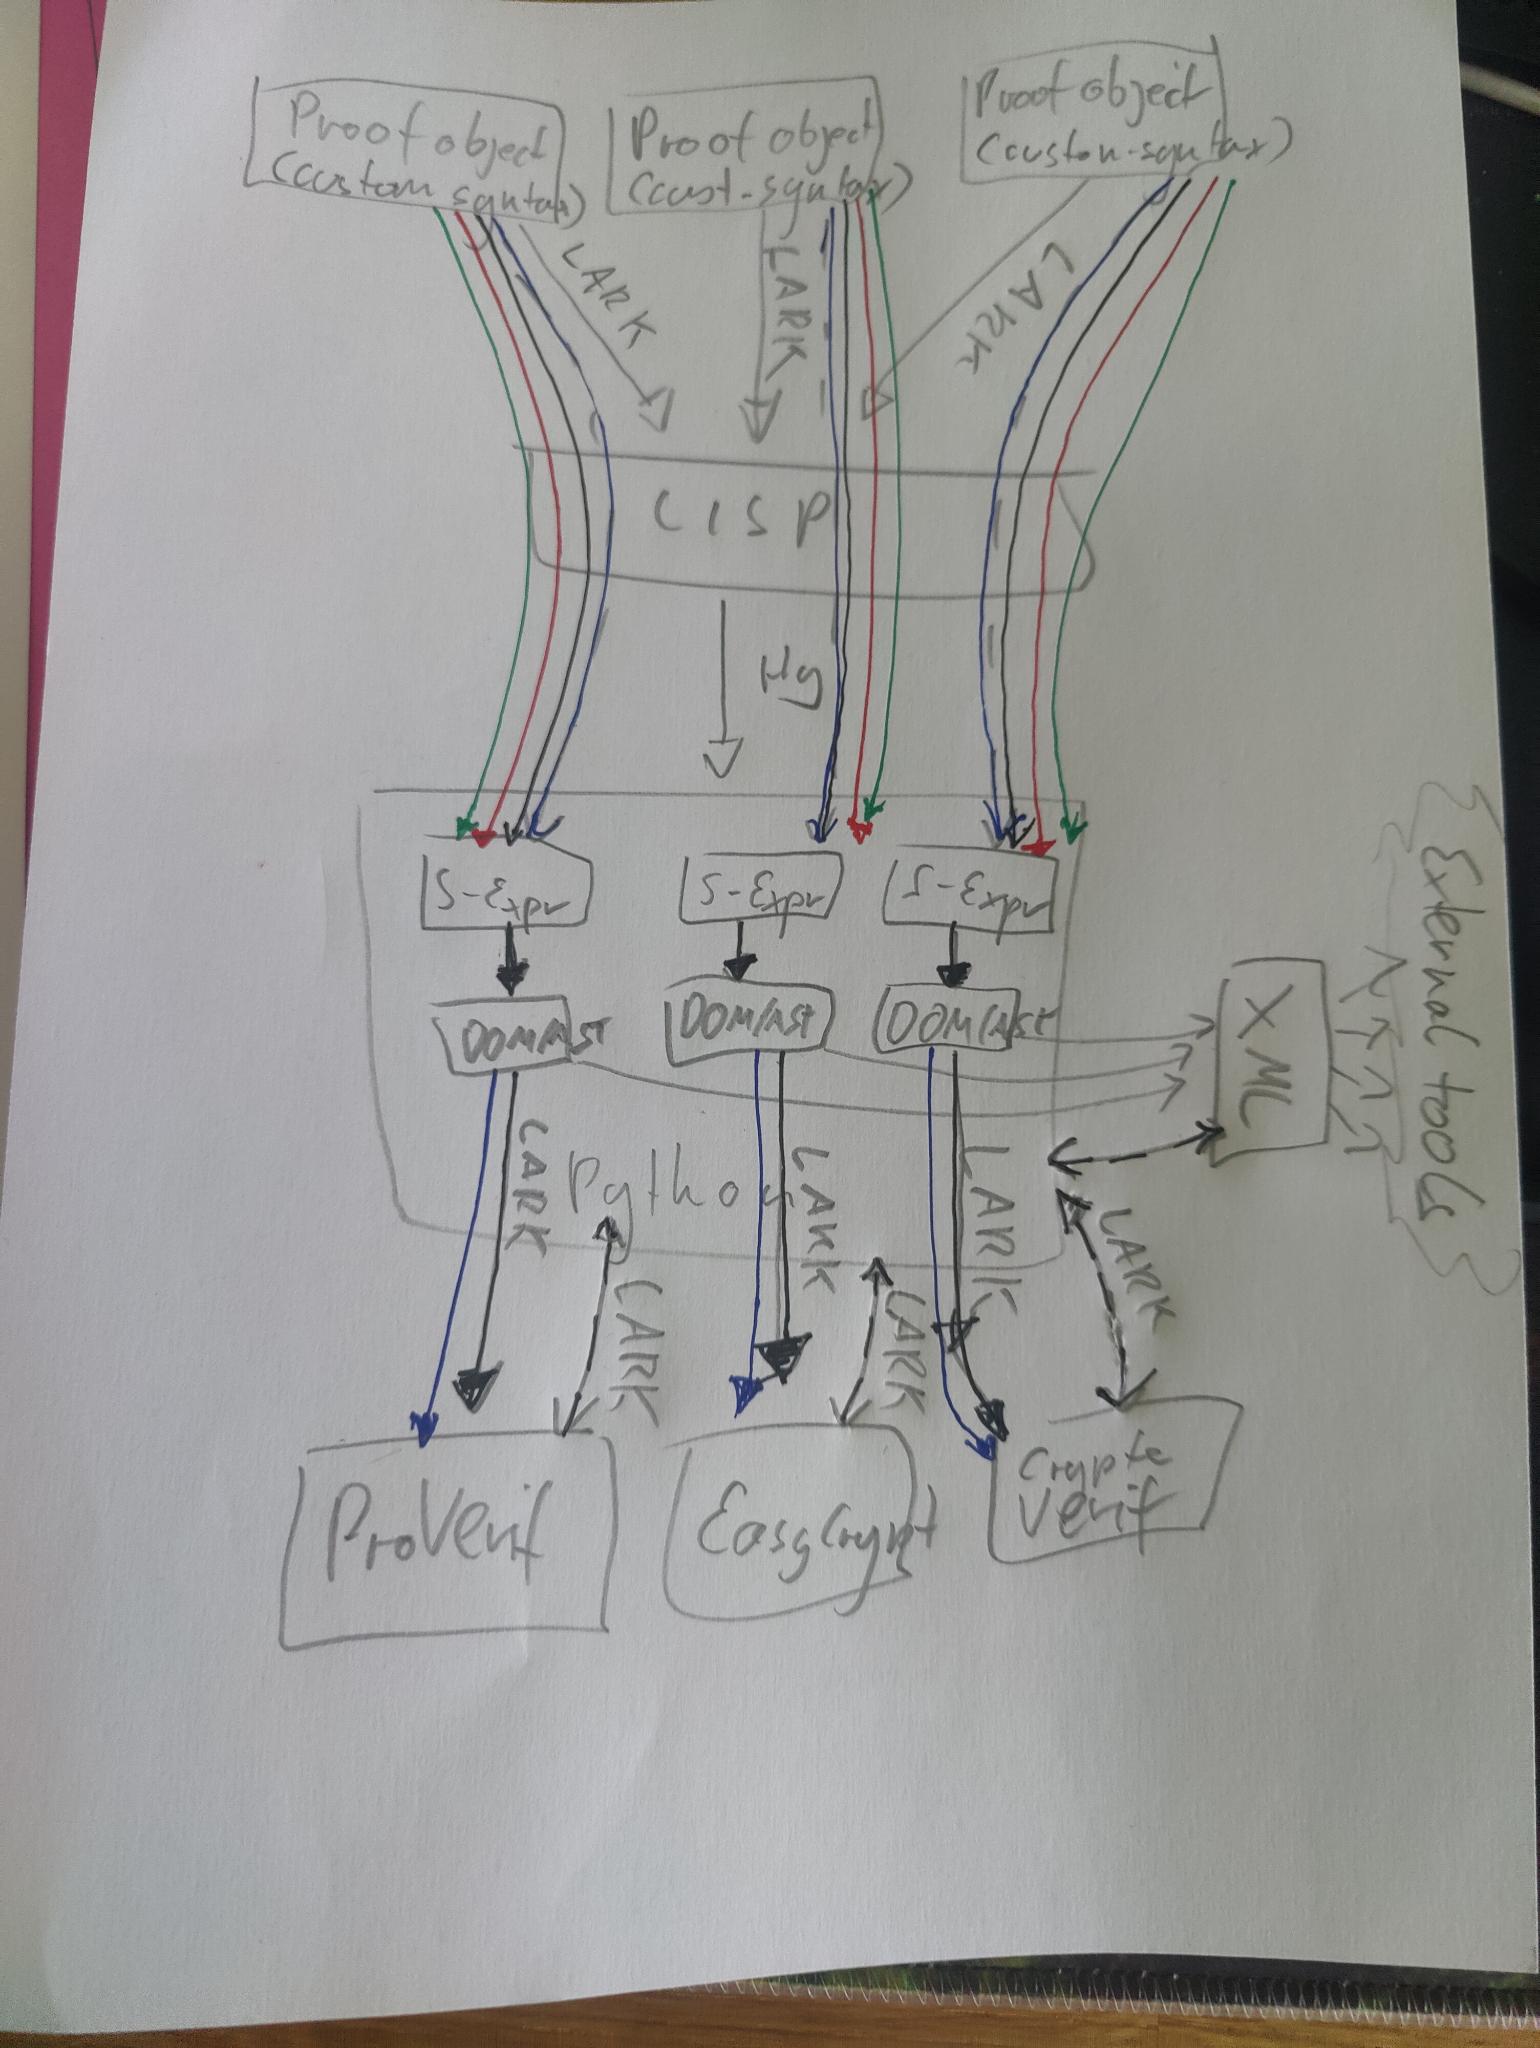 Proof object
(custom syntax)
Proof object
(cust-syntax)
Proof object
(custom-syntax)
LARK
LARK
LARK
LISP
Hy
S-Expr
S-Expr
S-Expr
DOM/AST
DOM/AST
DOM/AST
XML
External tools
LARK
Python
LARK
LARK
LARK
LARK
LARK
ProVerif
EasyCrypt
Crypto
Verif